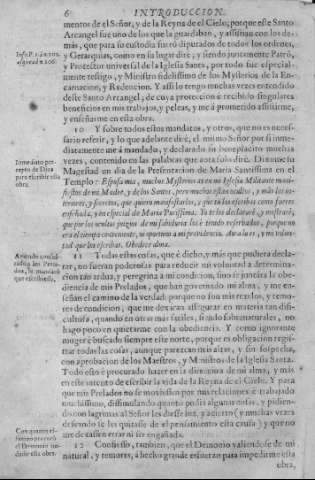 6 INTRODUCCION.
mentos de el Señor, y de la Reyna de el Cielo; porque este Santo
Arcangel fue vno de los que la guardaban, y assistian con los de-
màs, que para su custodia fueró diputados de todos los ordenes,
y Gerarquias, como en su lugar dirè, y siendo juntamente Patrõ,
y Protector vniversal de la Iglesia Santa, por todo fue especial-
mente testigo, y Ministro fidelissimo de los Mysterios de la En-
carnacion, y Redencion. Y assi lo tengo muchas vezes entendido
deste Santo Arcangel, de cuya proteccion è recibido singulares
beneficios en mis trabajos, y peleas, y me à prometido assistirme,
y enseñarme en esta obra.
10 Y sobre todos estos mandatos, y otros, que no es neces-
sario referir, y lo que adelante dirè, el mismo Señor por si inme-
diatamente me à mandado, y declarado su beneplacito muchas
vezes, contenido en las palabras que aora solo dirè. Dixome su
Magestad vn dia de la Presentacion de Maria Santissima en el
Templo: Esposa mia, muchos Mysterios ay en mi Iglesia Militante mani-
festos de mi Madre, y de los Santos, pero muchos estàn ocultos, y mas los in-
teriores, y secretos, que quiero manifestarlos, y que tu los escribas como fueres
enseñada, y en especial de Maria Purissima. Yo te los declararè, y mostrarè,
que por los ocultos juizios de mi sabiduria los è tenido reservados, porque no
era el tiempo conveniente, ni oportuno à mi providencia. Aora lo es, y mi volun-
tad que los escribas. Obedece alma.
11 Todas estas cosas, que è dicho, y màs que pudiera decla-
rar, no fueran poderosas para reducir mi voluntad à determina-
cion tan ardua, y peregrina à mi condicion, sino se juntàra la obe-
diencia de mis Prelados, que han governado mi alma, y me en-
señan el camino de la verdad: porque no son mis rezelos, y temo-
res de condicion, que me dexaran assegurar en materia tan dif-
cultosa, quando en otras màs faciles, siendo sobrenaturales, no
hago poco en quietarme con la obediencia. Y como ignorante
muger è buscado siempre este norte, porque es obligacion regis-
trar todas las cosas, aunque parezcan màs altas, y sin sospecha,
con aprobacion de los Maestros, y Ministros de la Iglesia Santa.
Todo esto è procurado hazer en la direccion de mi alma, y màs
en este intento de escribir la vida de la Reyna de el Cielo. Y para
que mis Prelados no se moviessen por mis relaciones è trabajado
muchissimo, dissimulando quanto podia algunas cosas, y pidien-
do con lagrimas al Señor les diesse luz, y acierto (y muchas vezes
desseando se les quitasse de el pensamiento esta causa) y que no
me dexassen errar ni ser engañada.
12 Confiesso, tambien, que el Demonio valiendose de mi
natural, y temores, à hecho grande esfuerço para impedirme esta
obra,